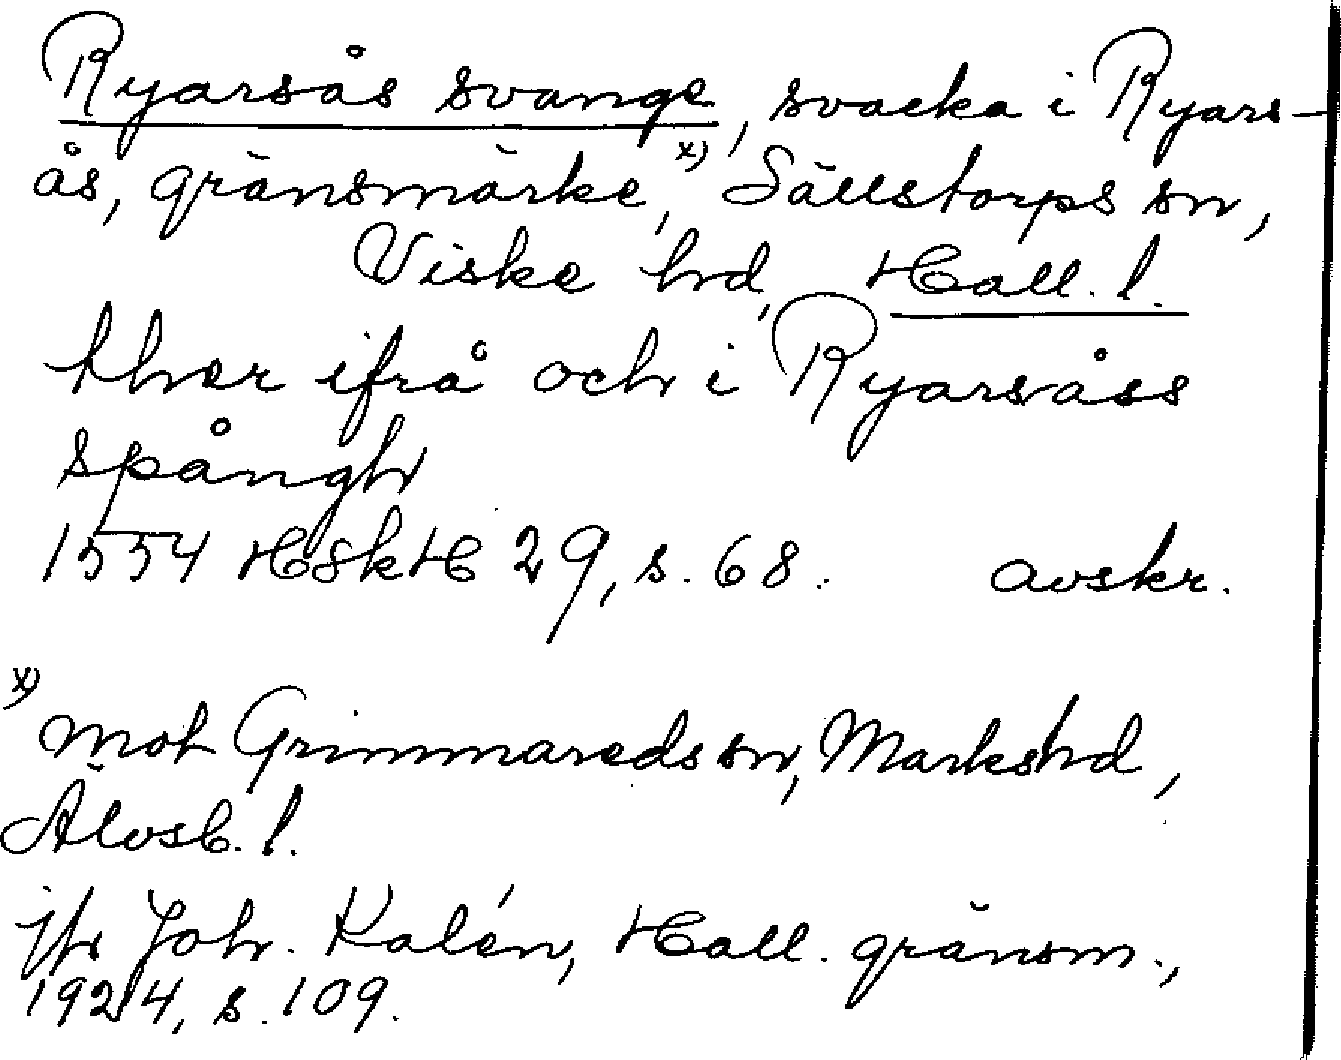 Ryarsås svange, svacka i Ryars-
ås, gränsmärke,x) Sällstorps sn,
Viske hd, Hall. l.
ther ifrå och i Ryarsåss
spångh
1554 HSkH 29, s. 68. avskr.
x) mot Grimmareds sn, Marks hd,
Älvsb. l.
jfr Joh. Kalén, Hall. gränsm.,
1924, s. 109.